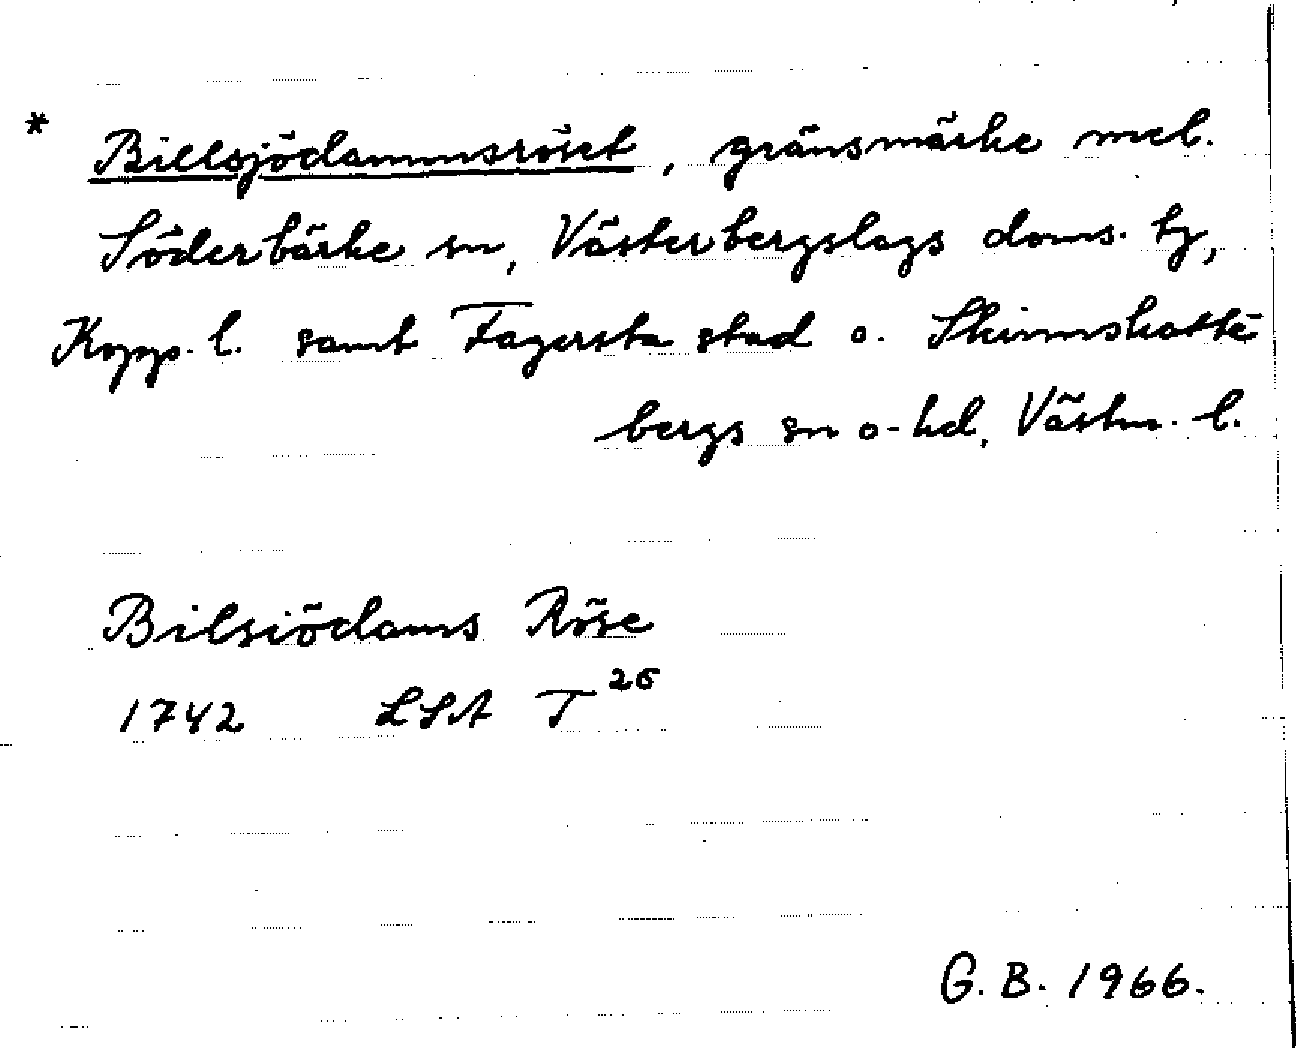 * Billsjödammsröset, gränsmärke mel.
Söderbärke sn, Västerbergslags doms. tg,
Kopp. l. samt Fagersta stad o. Skinnskatte-
bergs sn o. hd, Västm. l.
Bilsiödams Röse
1742 LSA T 26
G. B. 1966.